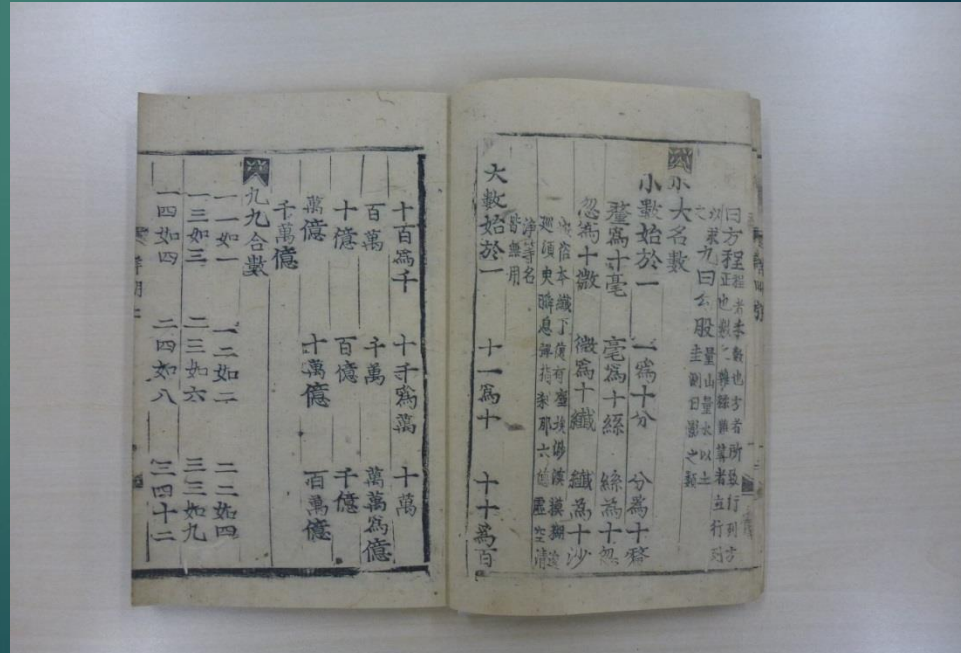 曰方程 程者本數也方者所致行列方
正也數之雜糅難算者立行列
以求
之
九曰勾股 量山量水以土
圭測日影之類
小大名數
小數始於一 一爲十分 分爲十釐
釐爲十毫 毫爲十絲 絲爲十忽
忽爲十微 微爲十纖 纖爲十沙
本纖下復有塵埃渺漠模糊逡
巡須臾瞬息彈指刹那六德虛空清
淨等名
皆無用
大數始於一 十一爲十 十十爲百
十百爲千 十千爲萬 十萬
百萬 千萬 萬萬爲億
十億 百億 千億
萬億 十萬億 百萬億
千萬億
九九合數
一一如一 一二如二 二二如四
一三如三 二三如六 三三如九
一四如四 二四如八 三四十二